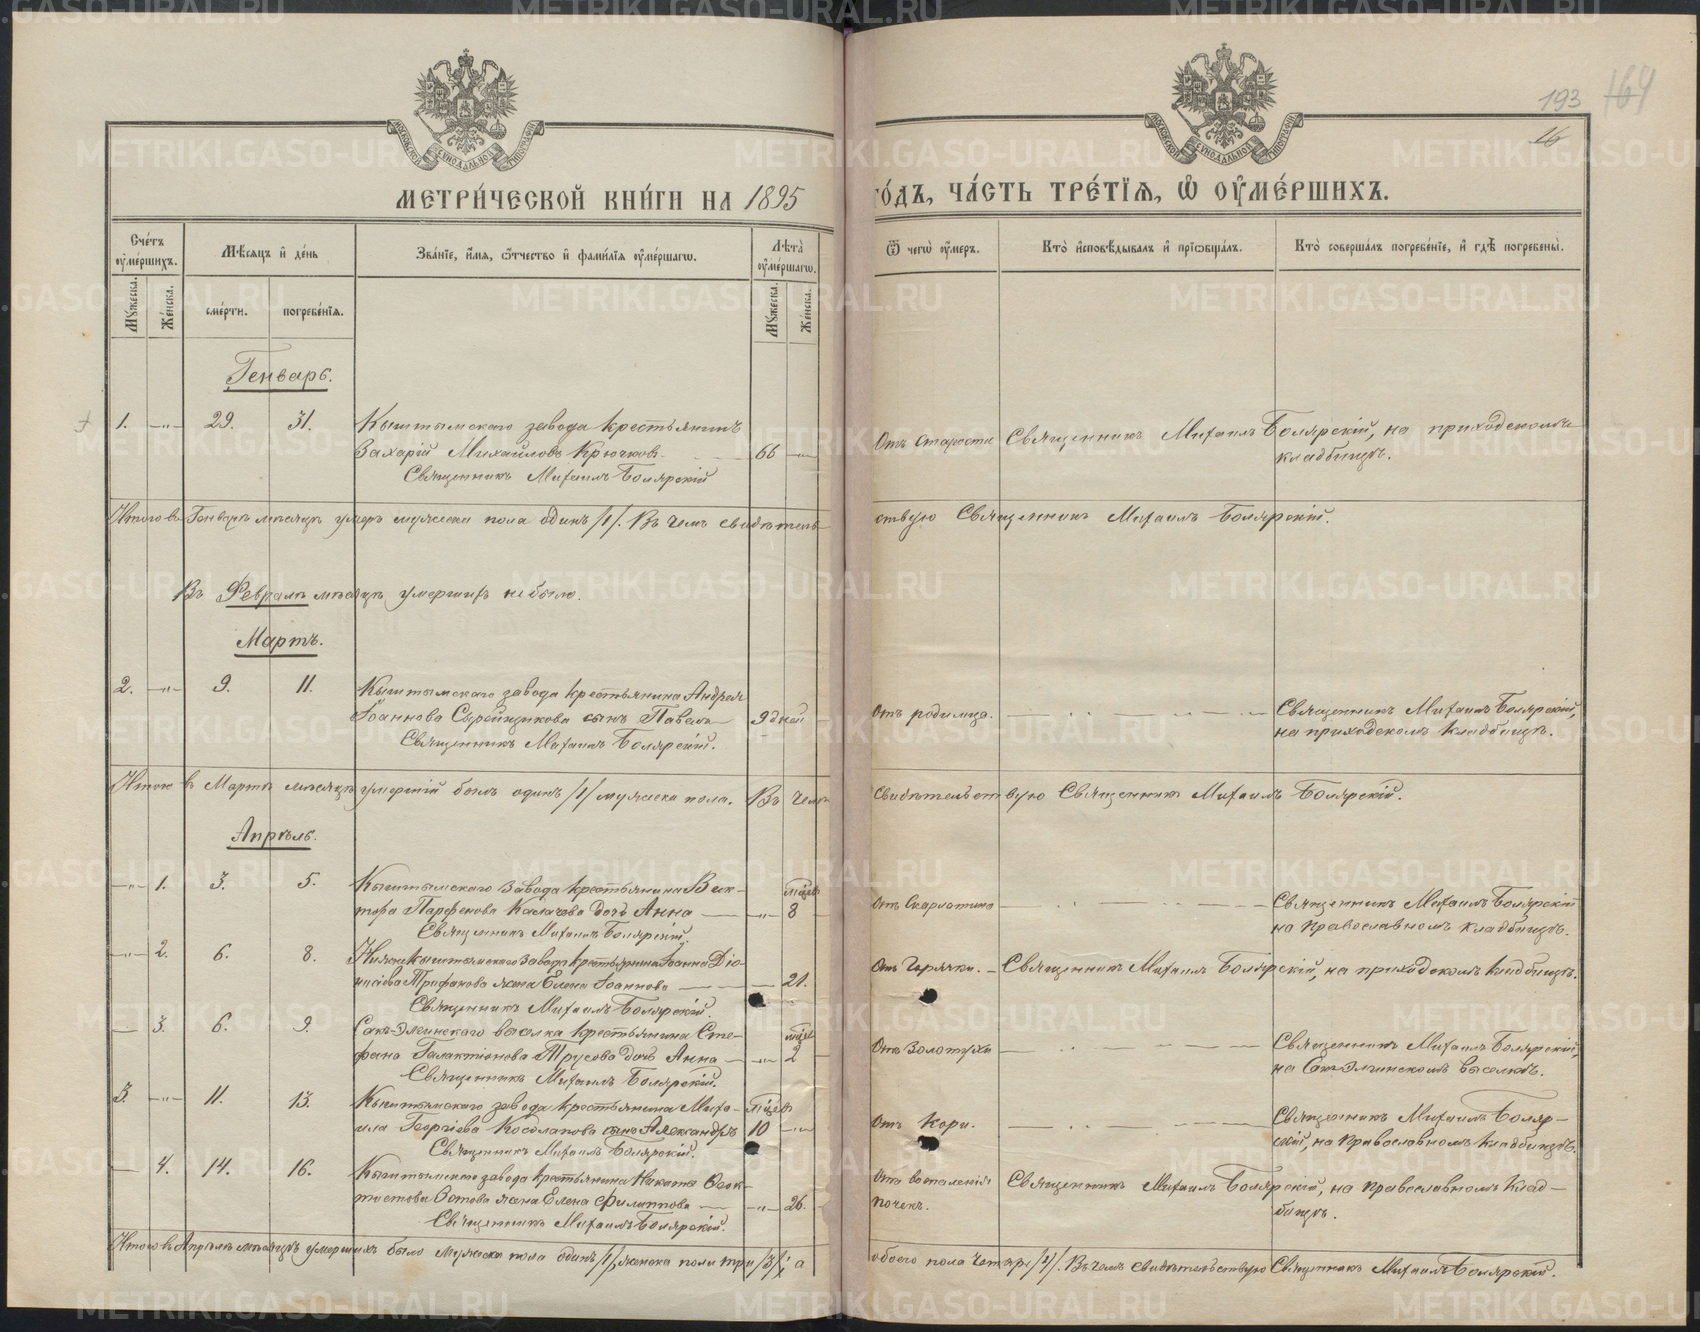 193 164
16
МЕТРИ́ЧЕСКОЙ КНИ́ГИ НА 1895 ГО́ДЪ, ЧА́СТЬ ТРЕ́ТІѦ, Ѡ҆ ОУ҆МЕ́РШИХЪ.
Счетъ оумершихъ.
Мѣсяцъ и день
Званіе, имя, отчество и фамилія оумершаго.
Лѣта оумершаго.
Ѿ чего оумеръ.
Кто исповѣдывалъ и пріобщалъ.
Кто совершалъ погребеніе, и гдѣ погребены.
Мужеска.
Женска.
смерти.
погребенія.
Мужеска.
Женска.
Генварь.
1. —"— 29. 31. Кыштымскаго завода крестьянинъ
Захарій Михайловъ Крючковъ 66 —"— Отъ старости Священникъ Михаилъ Боярскій, на приходскомъ
кладбищѣ.
Священникъ Михаилъ Боярскій
Итого въ Генварѣ мѣсяцѣ умеръ мужеска пола одинъ /1/. Въ чемъ свидѣтель-
ствую Священникъ Михаилъ Боярскій.
Въ Февралѣ мѣсяцѣ умершихъ не было.
Мартъ.
2. —"— 9. 11. Кыштымскаго завода крестьянина Андрея
Іоаннова Сырейщикова сынъ Павелъ 9 дней Отъ родимца. Священникъ Михаилъ Боярскій,
на приходскомъ кладбищѣ.
Священникъ Михаилъ Боярскій.
Итого въ Мартѣ мѣсяцѣ умершій былъ одинъ /1/ мужеска пола. Въ чемъ
свидѣтельствую Священникъ Михаилъ Боярскій.
Апрѣль.
—"— 1. 3. 5. Кыштымскаго завода крестьянина Вик-
тора Парфенова дочь Анна —"— мѣсяц. 8 Отъ Скарлатина Священникъ Михаилъ Боярскій
на православномъ кладбищѣ.
Священникъ Михаилъ Боярскій.
—"— 2. 6. 8. Нижнекыштымскаго завода крестьянина Іоанна Діо-
нисіева Трифанова жена Елена Іоаннова 21. Отъ Горячки. Священникъ Михаилъ Боярскій, на приходскомъ кладбищѣ.
Священникъ Михаилъ Боярскій.
— 3. 6. 9. Сакъ-Элгинскаго выселка крестьянина Сте-
фана Галактіонова Трусова дочь Анна —"— мѣсяц. 2 Отъ Золотухи Священникъ Михаилъ Боярскій,
на Сакъ-Элгинскомъ выселкѣ.
Священникъ Михаилъ Боярскій.
3. —"— 11. 13. Кыштымскаго завода крестьянина Миха-
ила Георгіева Косолапова сынъ Александръ мѣсяц. 10 —"— Отъ Кори. Священникъ Михаилъ Бояр-
скій, на православномъ кладбищѣ.
Священникъ Михаилъ Боярскій.
— 4. 14. 16. Кыштымскаго завода крестьянина Ѳеок-
тистова жена Елена Филиппова —"— 26. Отъ воспаленія почекъ. Священникъ Михаилъ Боярскій, на православномъ клад-
бищѣ.
Священникъ Михаилъ Боярскій.
Итого въ Апрѣлѣ мѣсяцѣ умершихъ было мужеска пола одинъ /1/, женска пола три /3/, а
обоего пола четыре /4/. Въ чемъ свидѣтельствую Священникъ Михаилъ Боярскій.
METRIKI.GASO-URAL.RU